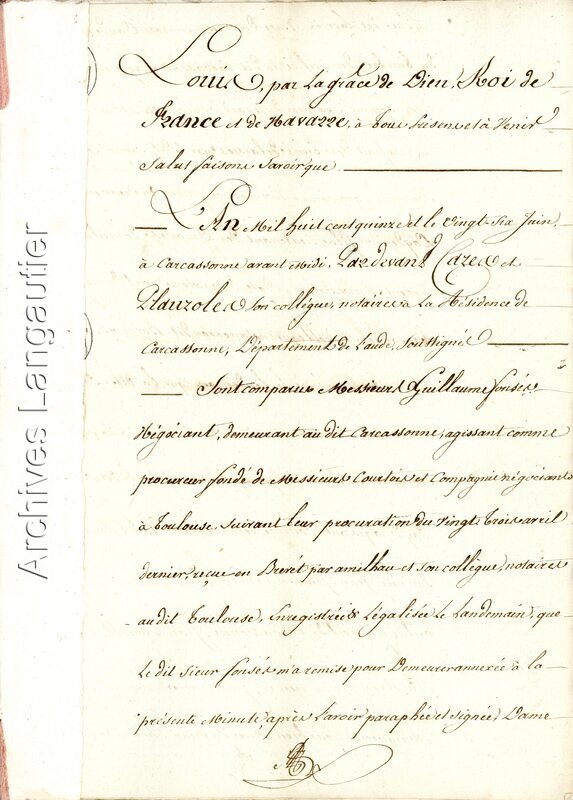 Louis, par La grâce de Dieu, Roi de
France et de Navarre, à Tous présens et à Venir
Salut faisons Savoir que
L'An Mil huit cent quinze et le vingt-Six Juin,
à Carcassonne avant Midi. Pardevant Cazes et
Plauzoles son collègue, notaires à La Résidence de
Carcassonne, Département de Laude, Soussignés
Sont comparus Messieurs Guillaume fonsés,
Négociant, demeurant audit Carcassonne, agissant comme
procureur fondé de Messieurs Courtois et Compagnie négociants
à Toulouse, suivant leur procuration du Vingt Trois avril
dernier, reçue en Brevét par amilhau et son collègue, notaires
audit Toulouse, Enregistrée & Légalisée Le Landemain, que
Le dit Sieur fonsés m'a remise pour Demeurer annexée à la
présente Minute, après L'avoir paraphée et signée, Dame
Archives Langautier